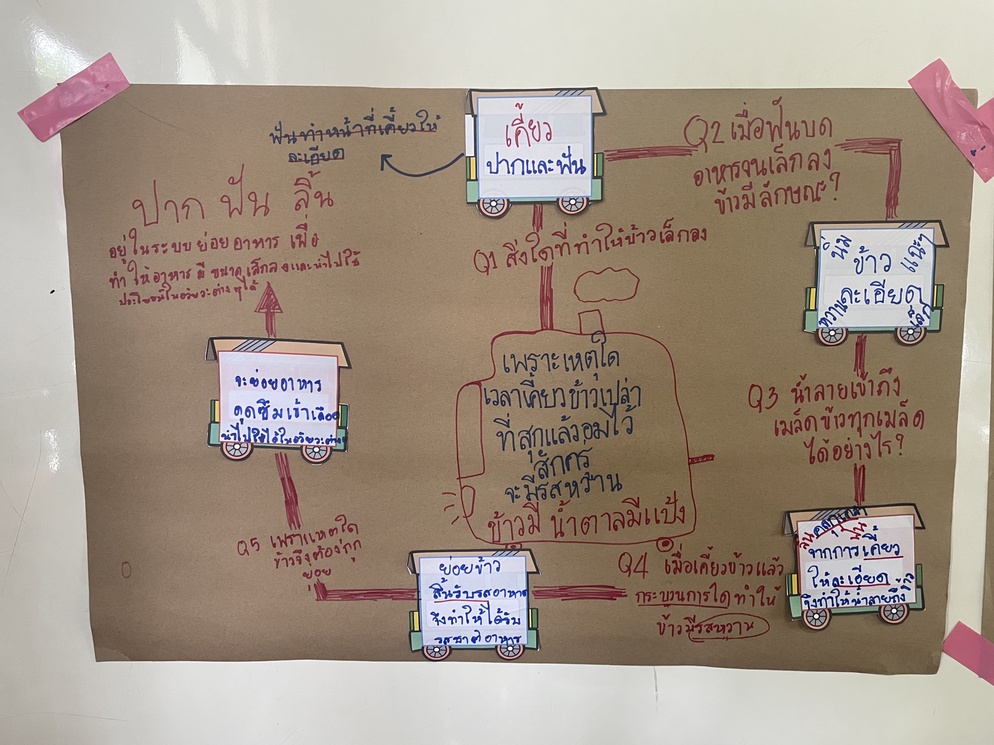 ฟันทำหน้าที่เคี้ยวให้
ละเอียด
เคี้ยว
ปากและฟัน
Q2 เมื่อฟันบด
อาหารจนเล็กลง
ข้าวมีลักษณะ?
ปาก ฟัน ลิ้น
อยู่ในระบบย่อยอาหาร เพื่อ
ทำให้อาหารมีขนาดเล็กลงและนำไปใช้
ประโยชน์ในอวัยวะต่างๆได้
Q1 สิ่งใดที่ทำให้ข้าวเล็กลง
นิ่ม ข้าว แฉะๆ
หวาน ละเอียด เล็ก
เพราะเหตุใด
เวลาเคี้ยวข้าวเปล่า
ที่สุกแล้วอมไว้
สักครู่
จะมีรสหวาน
ข้าวมี น้ำตาลมีแป้ง
Q3 น้ำลายเข้าถึง
เมล็ดข้าวทุกเมล็ด
ได้อย่างไร?
จะย่อยอาหาร
ดูดซึมเข้าเลือด
นำไปใช้ได้ในอวัยวะต่างๆ
ลิ้นคลุกเคล้า
จากการเคี้ยว
ให้ละเอียด
จึงทำให้น้ำลายถึง
ข้าว
Q4 เมื่อเคี้ยวข้าวแล้ว
กระบวนการใดทำให้
ข้าวมีรสหวาน
Q5 เพราะเหตุใด
ข้าวจึงต้องถูก
ย่อย
ย่อยข้าว
ลิ้นรับรสอาหาร
จึงทำให้ได้รับ
รสชาติอาหาร